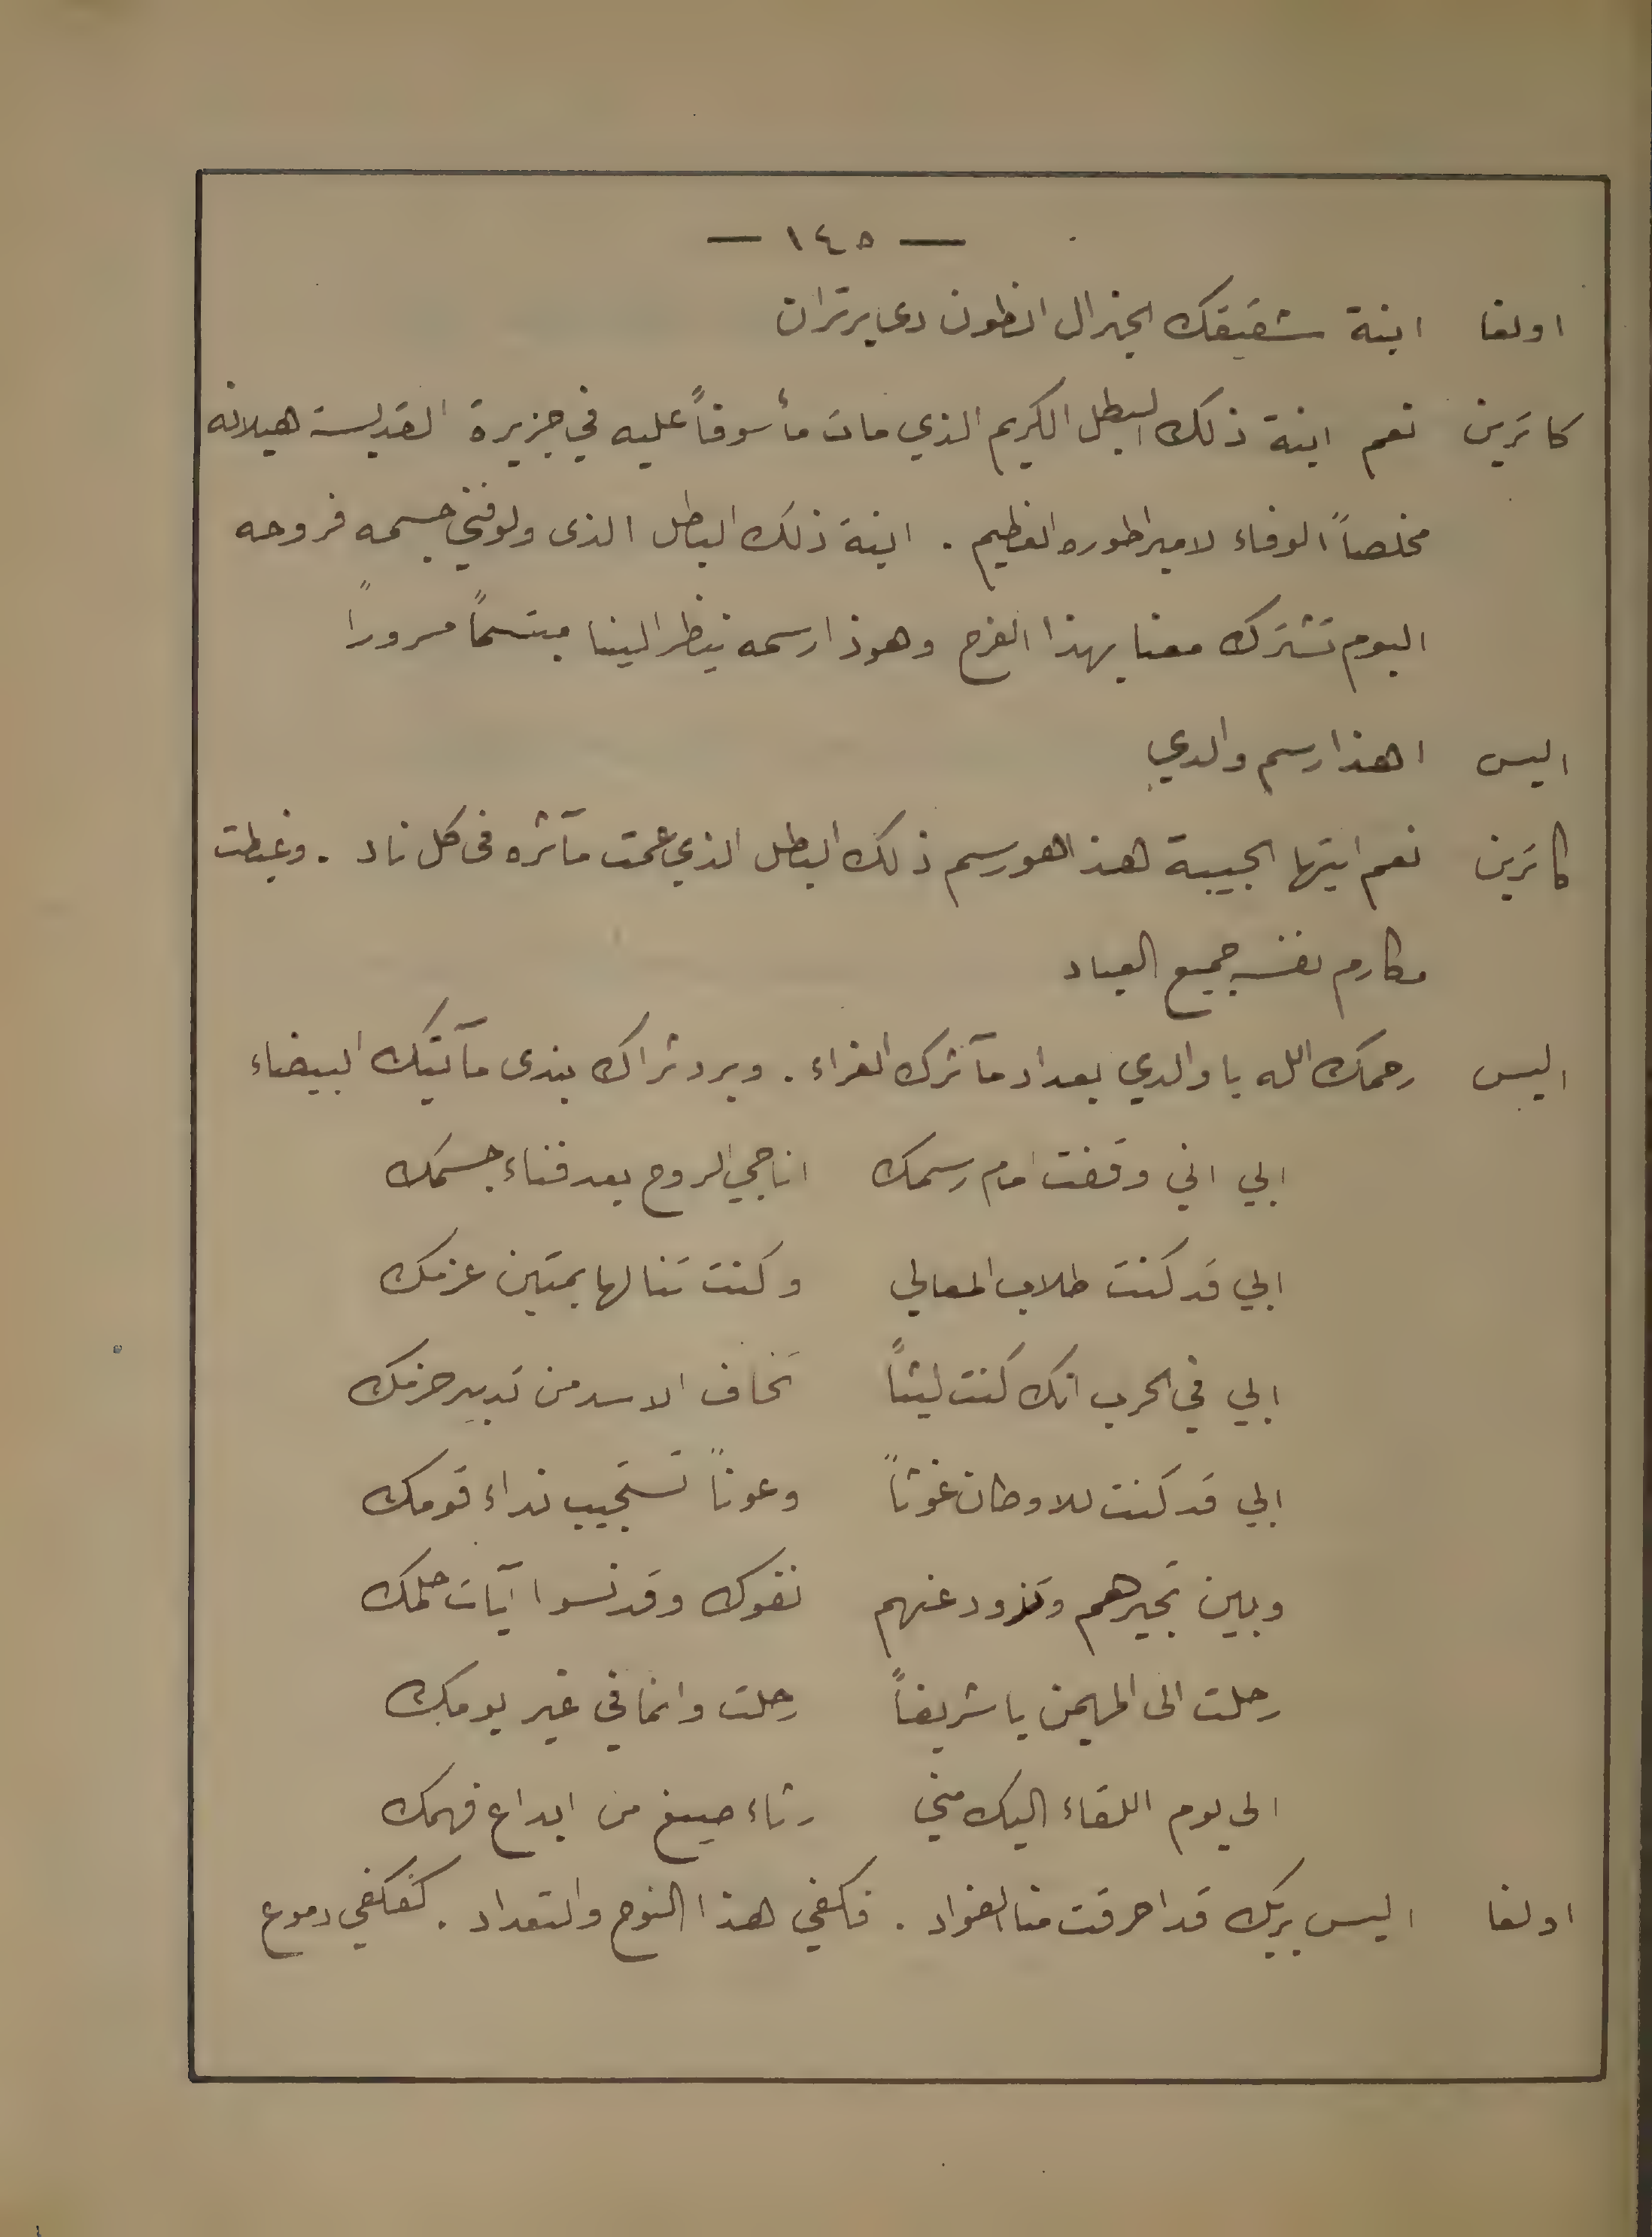 — ١٤٥ —
اولغا ابنة شقيقك الجنرال انطون دي برتران
كاترين نعم ابنة ذلك البطل الكريم الذي مات مأسوفاً عليه في جزيرة القديسة هيلانه
مخلصاً الوفاء لامبراطوره العظيم . ابنة ذلك البطل الذى ولو فني جسمه فروحه
اليوم تشترك معنا بهذا الفرح وهوذا رسمه ينظر الينا مبتسماً مسروراً
اليس اهذا رسم والدي
كاترين نعم ايتها الحبيبة هذا هو رسم ذلك البطل الذي عمت مآثره فى كل ناد . وغبطت
مكارم نفسه جميع العباد
اليس رحمك الله يا والدي بعداد مآثرك الغراء . وبرد ثراك بندى مآتيك البيضاء
ابي اني وقفت امام رسمك اناجي الروح بعد فناء جسمك
ابي قد كنت طلاب المعالي وكنت تنالها بمتين عزمك
ابي في الحرب انك كنت ليثاً تخاف الاسد من تدبير حزمك
ابي قد كنت للاوطان غوثاً وعوناً تستجيب نداء قومك
وبين تجيرهم وتذود عنهم نفوك وقد نسوا آيات حلمك
رحلت الى المهيمن يا شريفاً رحلت وانما في غير يومك
الى يوم اللقاء اليك مني رثاء صيغ من ابداع فهمك
اولغا اليس بربك قد احرقت منا الفواد . فكفي هذا النوح والتعداد . كفكفي دموع